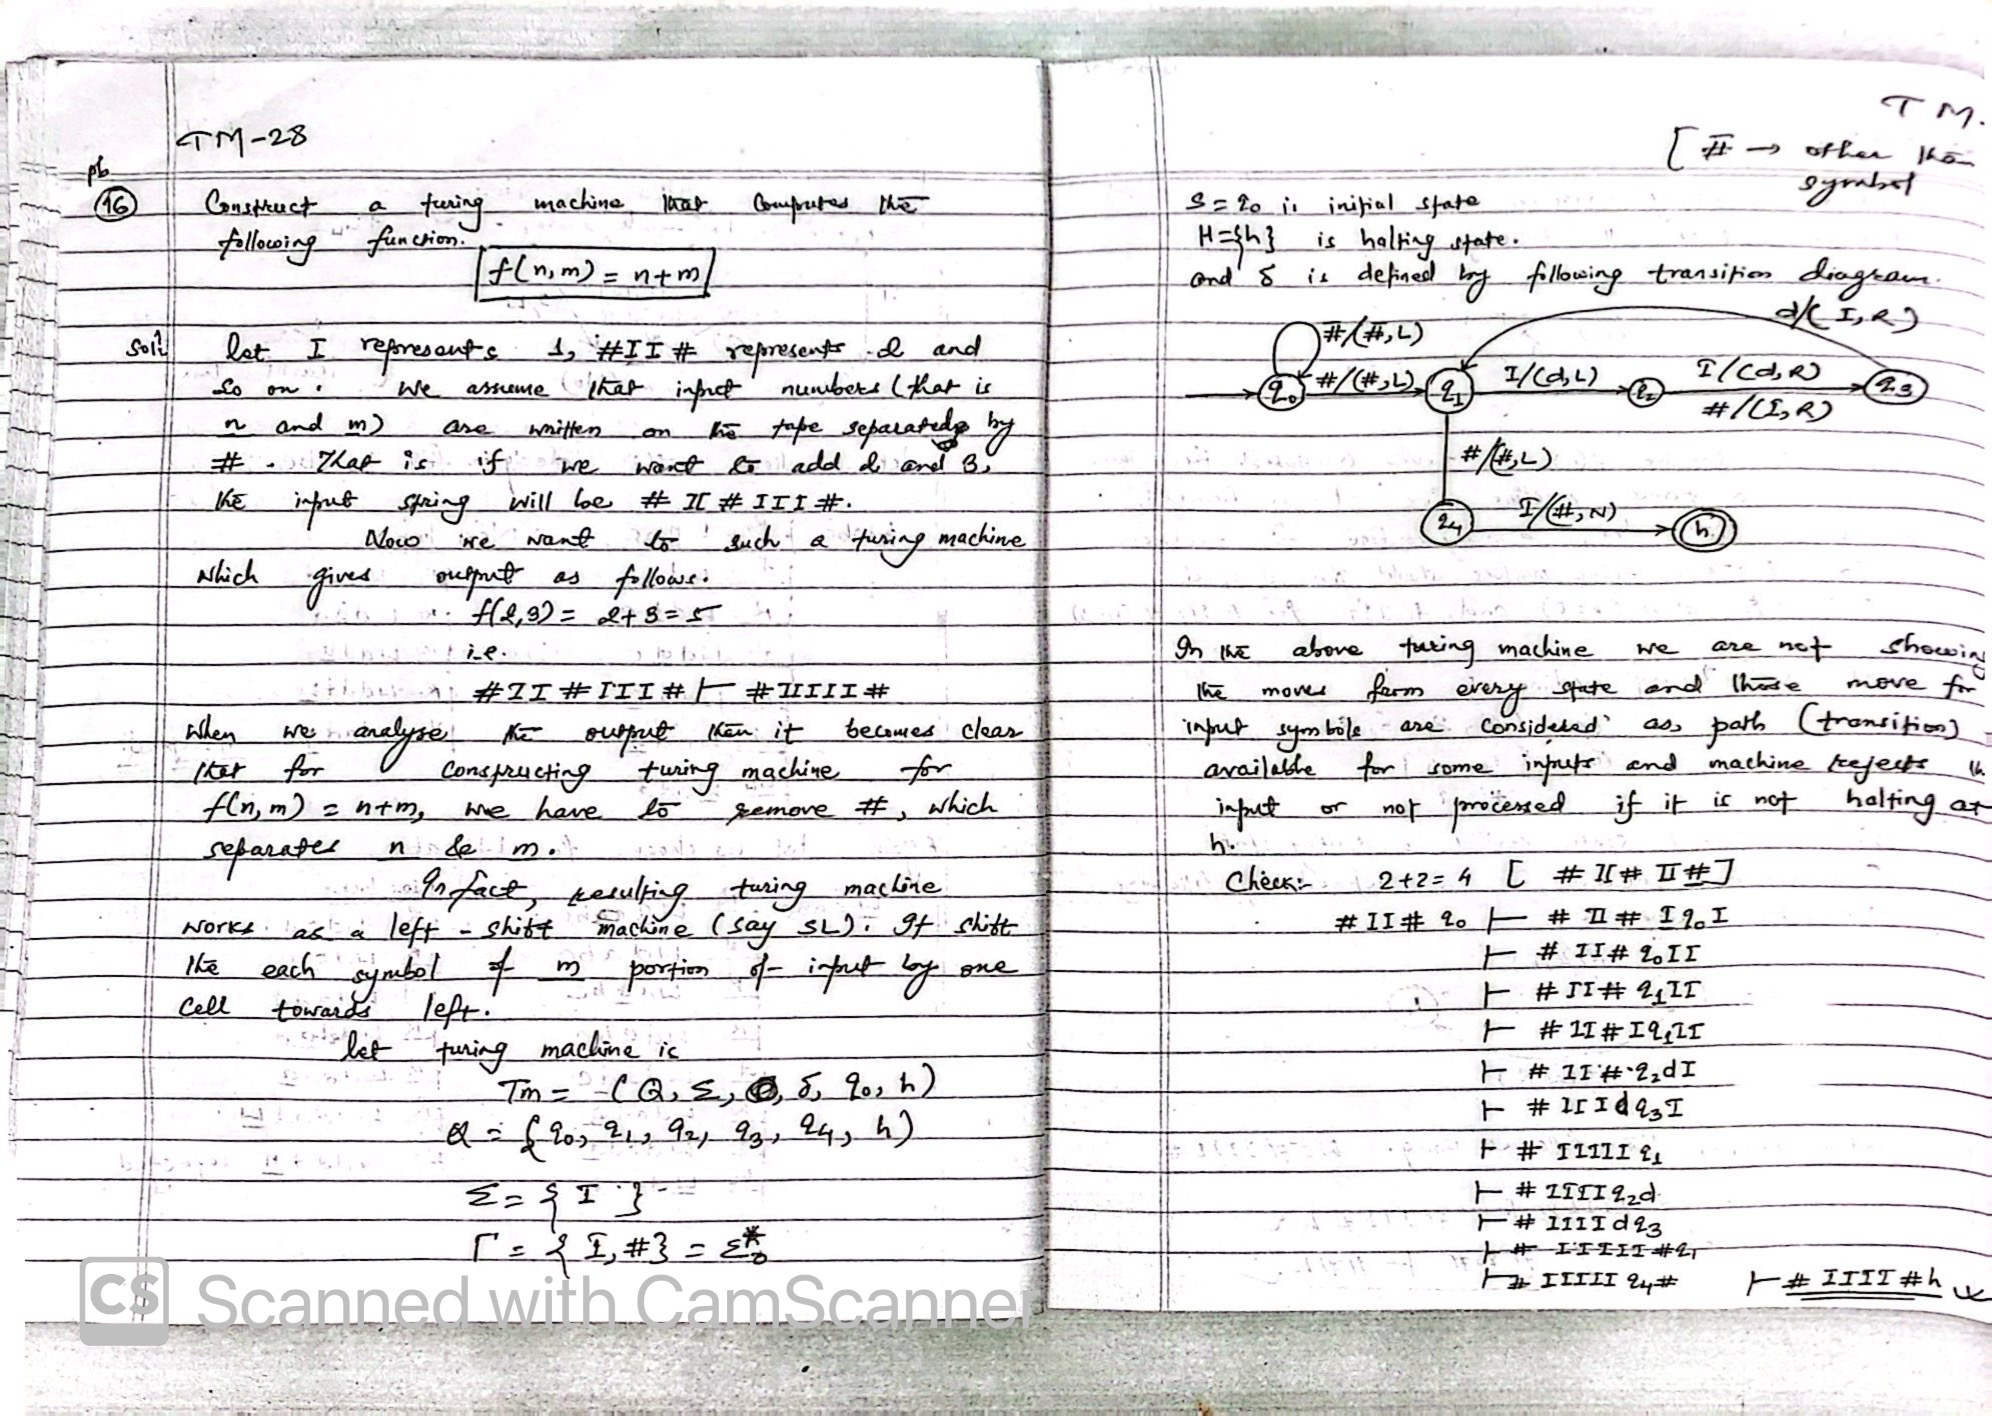 TM-28
pb
16 Construct a turing machine that computes the
following function.
f(n,m) = n+m
Solⁿ: let I represents 1, #II# represents 2 and
so on. We assume that input numbers (that is
n and m) are written on the tape separated by
#. That is if we want to add 2 and 3,
the input string will be #II#III#.
Now we want to such a turing machine
which gives output as follows.
f(2,3) = 2+3=5
i.e.
#II#III# ⊢ #IIIII#
When we analyse the output then it becomes clear
that for constructing turing machine for
f(n,m) = n+m, we have to remove #, which
separates n & m.
In fact, resulting turing machine
works as a left-shift machine (say SL). It shift
the each symbol of m portion of input by one
cell towards left.
let turing machine is
Tm = (Q, Σ, δ, q0, h)
Q = {q0, q1, q2, q3, q4, h)
Σ = {I}
Γ = {I, #} =
TM.
[ #̅ → other
symbol
S = q0 is initial state
H={h} is halting state.
and δ is defined by following transition diagram.
d/(I,R)
#̅/(#̅,L)
q0 #/(#,L) q1 I/(d,L) q2 I/(d,R) q3
#/(I,R)
#/(#,L)
q4 I/(#,N) h
In the above turing machine we are not showing
the moves from every state and those move for
input symbols are considered as path (transition)
available for some inputs and machine rejects
input or not processed if it is not halting at
h.
Check:- 2+2=4 [ #II#II#]
#II# q0 ⊢ #II# Iq0I
⊢ #II# q0II
⊢ #II# q1II
⊢ #II#Iq1II
⊢ #II#q2dI
⊢ #IIIdq3I
⊢ #IIIII q1
⊢ #IIIIq2d
⊢ #IIIIdq3
⊢ #IIIII#q1
⊢ #IIIII q4# ⊢ #IIII#h
CS Scanned with CamScanner